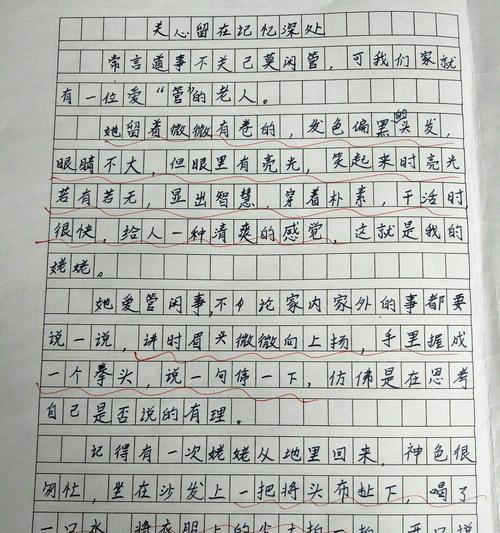 关心留在记忆深处
常言道事不关己莫闲管，可我们家就
有一位爱“管”的老人。
她留着微微有卷的，发色偏黑的头发，
眼睛不大，但眼里有亮光，笑起来时亮光
若有若无，显出智慧，穿着朴素，干活时
很快，给人一种清爽的感觉，这就是我的
姥姥。
她爱管闲事，不论家内家外的事都要
说一说，讲时眉头微微向上扬，手里握成
一个拳头，说一句停一下，仿佛是在思考
自己是否说的有理。
记得有一次姥姥从地里回来，神色很
匆忙，坐在沙发上一把将头布扯下，喝了
一口水，将衣服上的尘土拍一拍，开口说